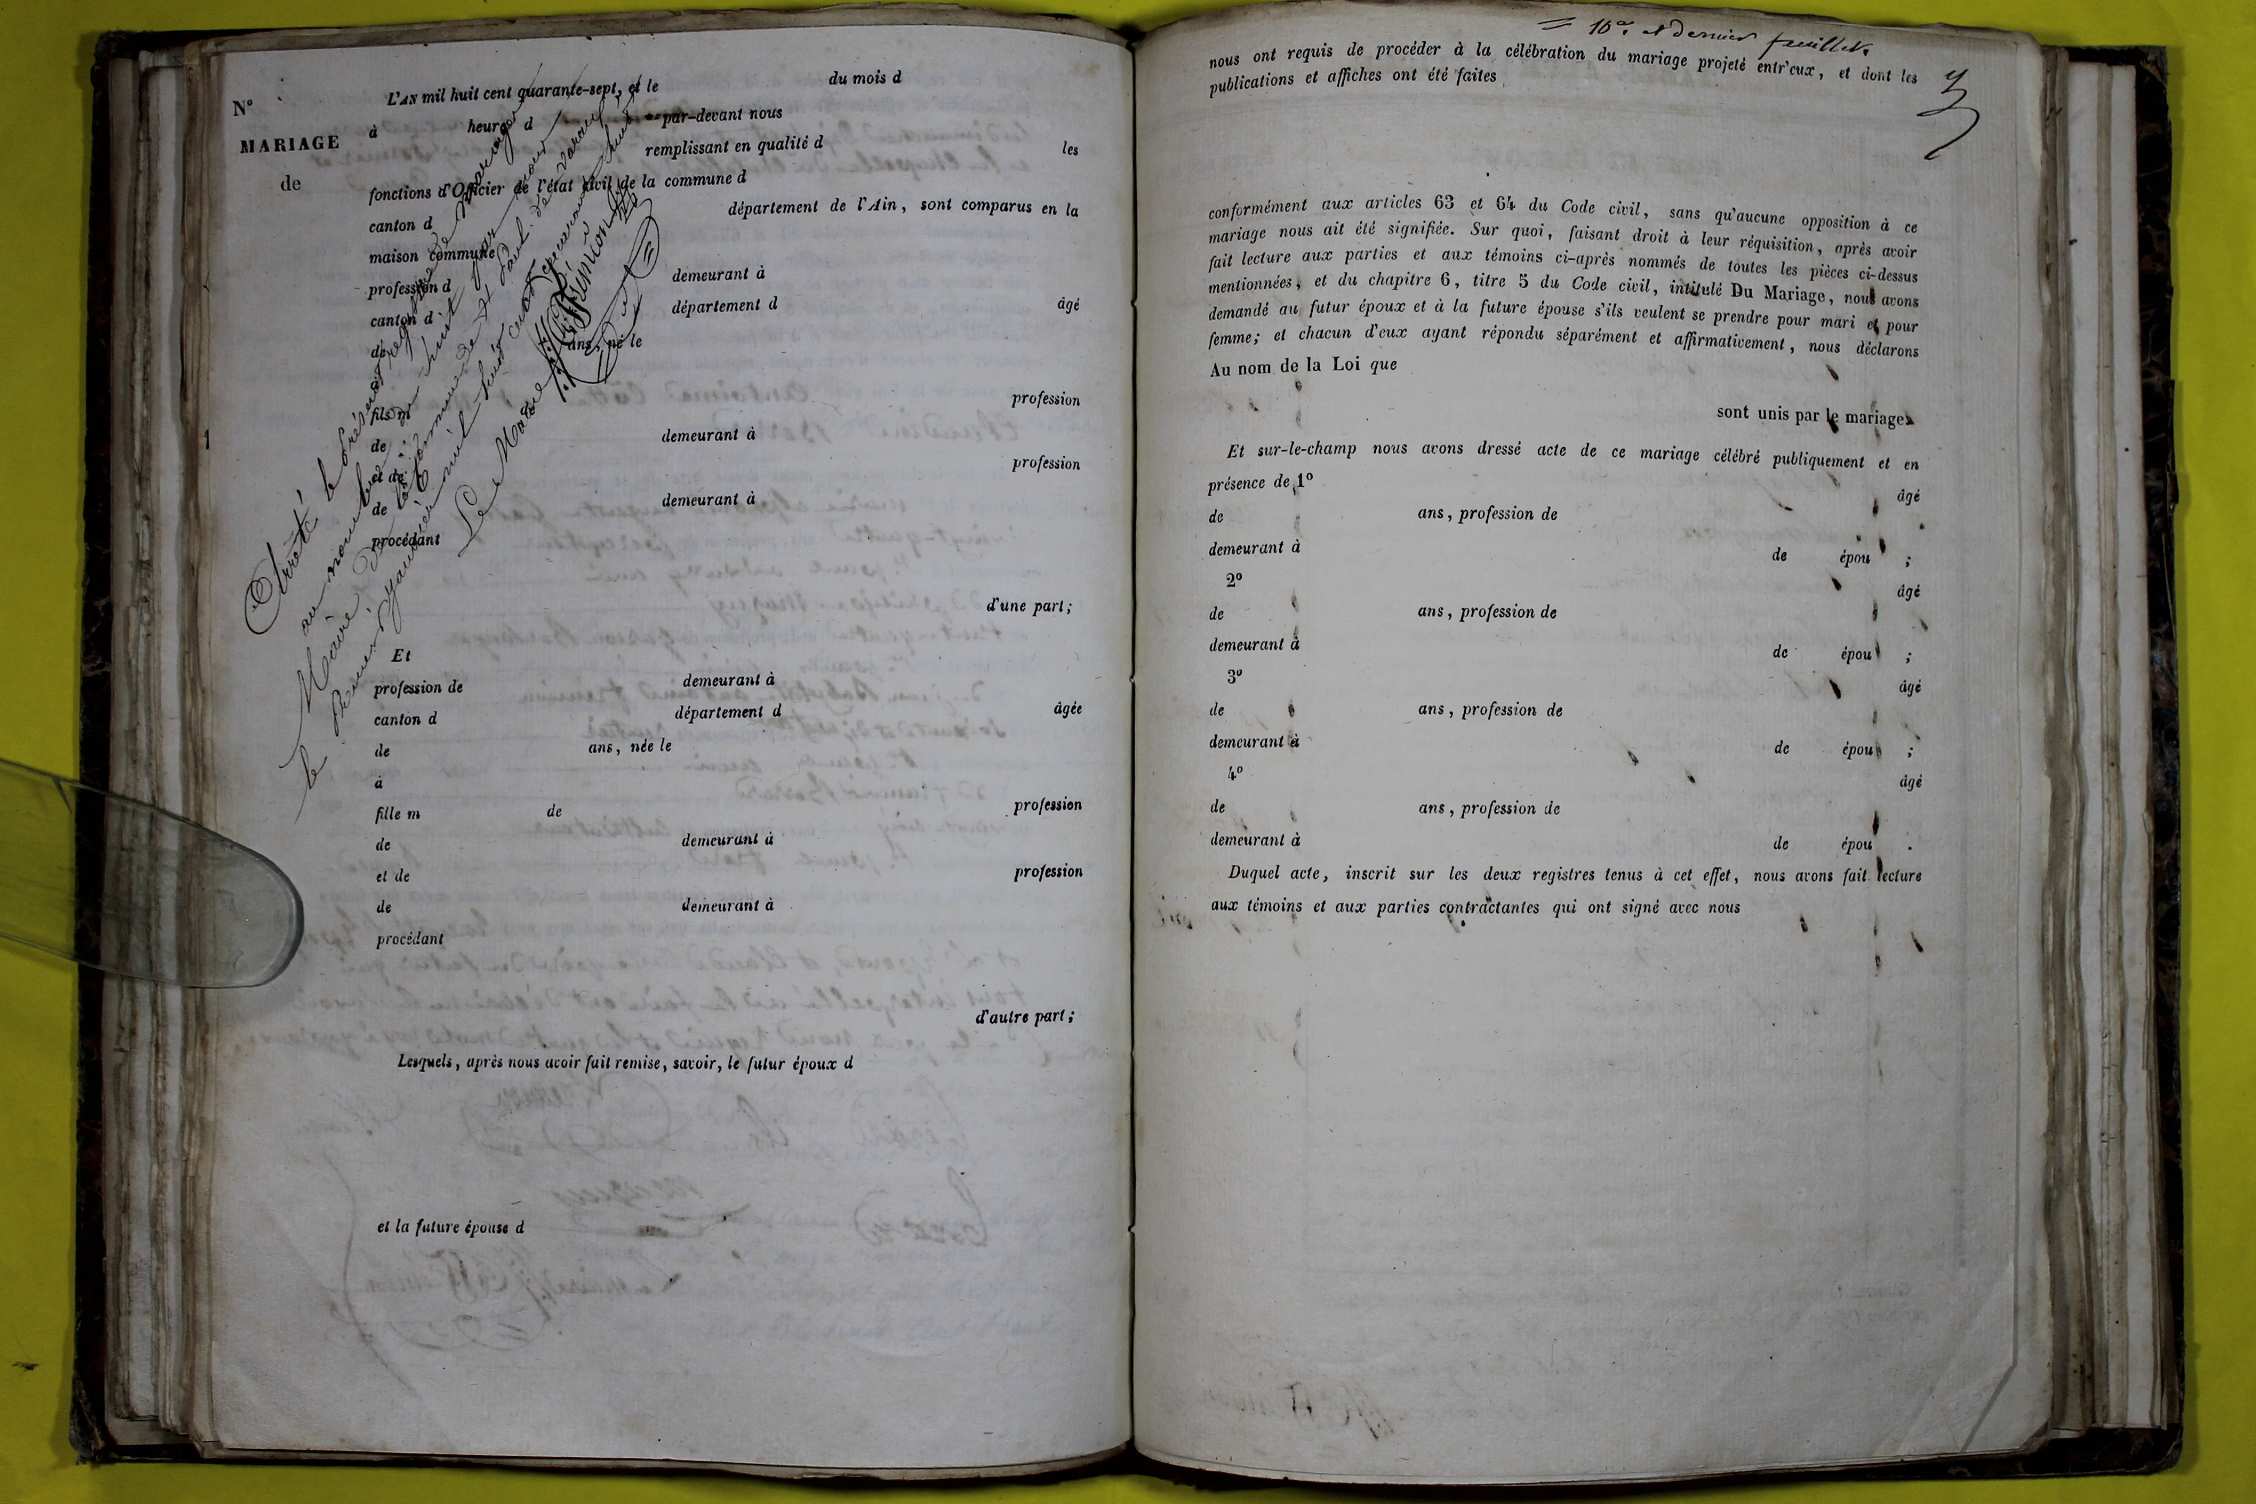 N°
MARIAGE
de
L'AN mil huit cent quarante-sept, et le du mois d
à heure d par-devant nous
remplissant en qualité d les
fonctions d'Officier de l'état civil de la commune d
canton d département de l'Ain, sont comparus en la
maison commune
profession d demeurant à
canton d département d âgé
de ans, né le
fils m profession
de demeurant à
et de profession
de demeurant à
procédant
d'une part;
Et
profession de demeurant à
canton d département d âgée
de ans, née le
à
fille m de profession
de demeurant à
et de profession
de demeurant à
procédant
d'autre part;
Lesquels, après nous avoir fait remise, savoir, le futur époux d
et la future épouse d
Arrêté le présent registre de mariages
au nombre de huit par nous
Maire de la Commune de St Paul de Varax
le premier janvier mil huit cent quarante huit
Le Maire
= 10e. et dernier feuillet.
nous ont requis de procéder à la célébration du mariage projeté entr'eux, et dont les
publications et affiches ont été faites
conformément aux articles 63 et 64 du Code civil, sans qu'aucune opposition à ce
mariage nous ait été signifiée. Sur quoi, faisant droit à leur réquisition, après avoir
fait lecture aux parties et aux témoins ci-après nommés de toutes les pièces ci-dessus
mentionnées, et du chapitre 6, titre 5 du Code civil, intitulé Du Mariage, nous avons
demandé au futur époux et à la future épouse s'ils veulent se prendre pour mari et pour
femme; et chacun d'eux ayant répondu séparément et affirmativement, nous déclarons
Au nom de la Loi que
sont unis par le mariage.
Et sur-le-champ nous avons dressé acte de ce mariage célébré publiquement et en
présence de 1° âgé
de ans, profession de
demeurant à de épou ;
2° âgé
de ans, profession de
demeurant à de épou ;
3° âgé
de ans, profession de
demeurant à de épou ;
4° âgé
de ans, profession de
demeurant à de épou .
Duquel acte, inscrit sur les deux registres tenus à cet effet, nous avons fait lecture
aux témoins et aux parties contractantes qui ont signé avec nous